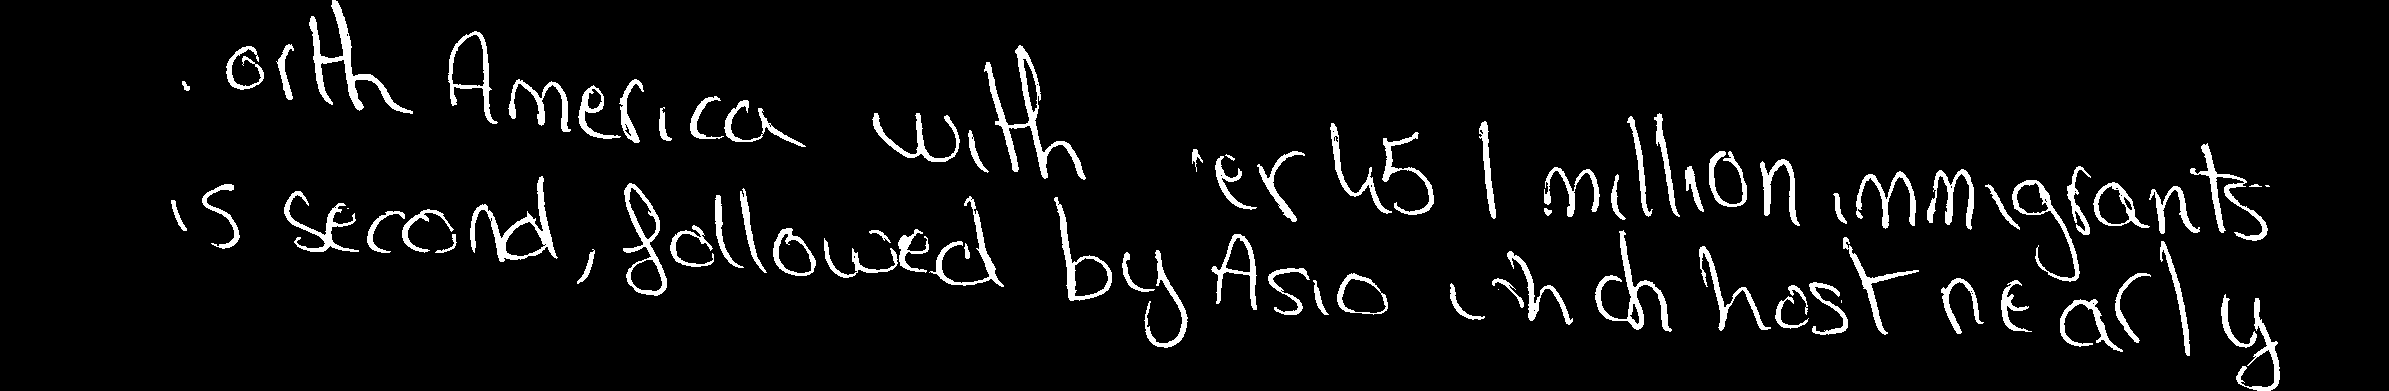 North America with over 45 1 million immigrants
is second, followed by Asia which host nearly